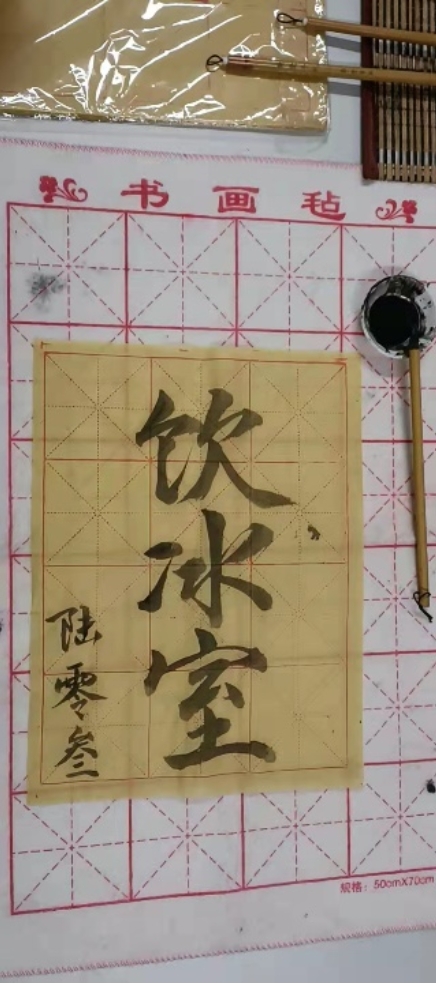 书画毡
饮冰室
陆零叁
规格：50cmX70cm